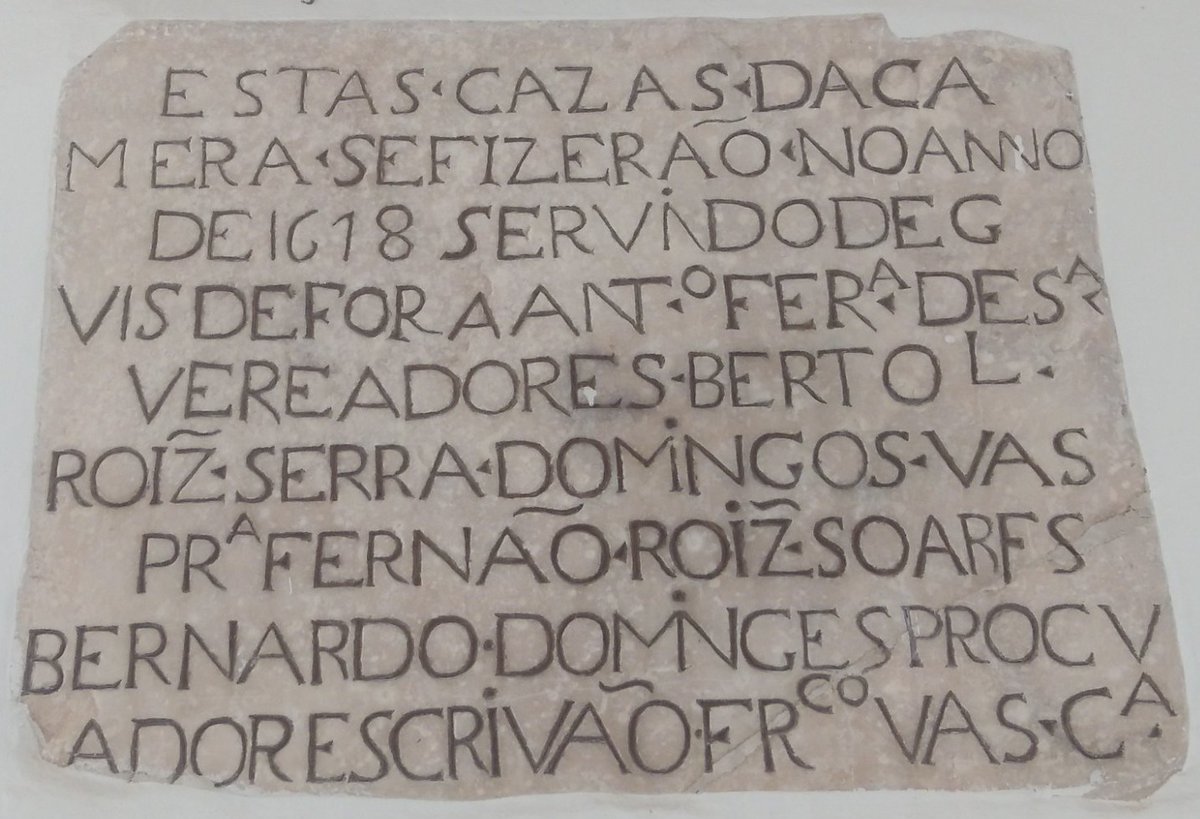 ESTAS·CAZAS·DACA
MERA·SEFIZERAÕ·NOANNO
DE1618 SERVINDODEG
VISDEFORAANT.ºFERᴬ·DESᴬ
VEREADORES·BERTOᴸ·
ROIZ̃·SERRA·DOMINGOS·VAS
PRᴬFERNAÕ·ROIZ̃·SOARES
BERNARDO·DOMINGESPROCV
ADORESCRIVAÕ·FRᶜᴼVAS·Cᴬ·